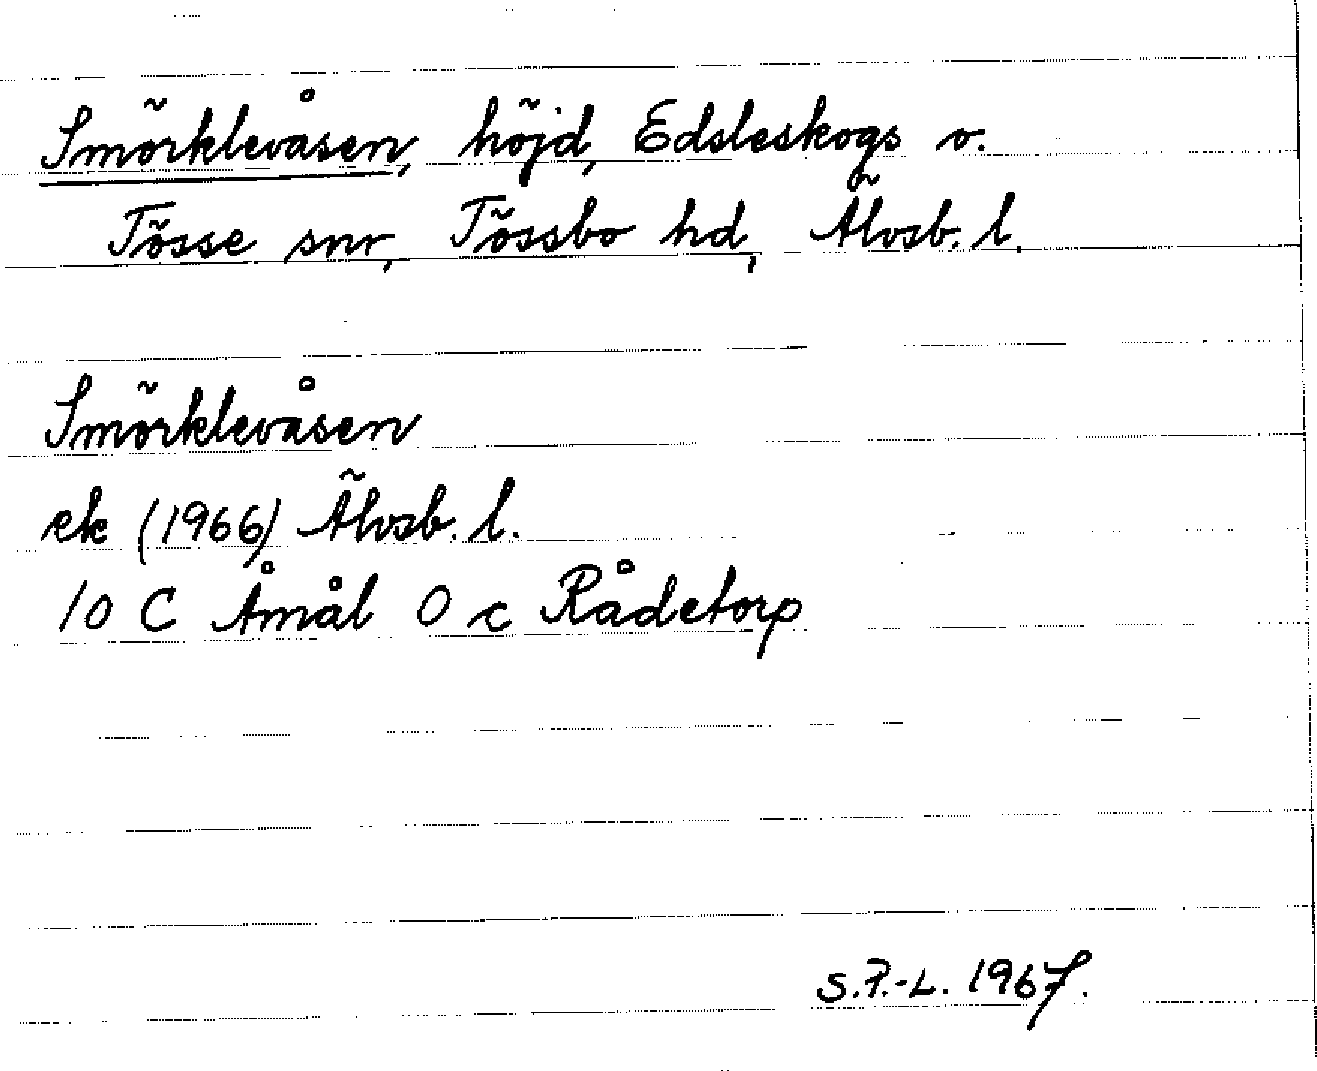 Smörklevåsen, höjd, Edsleskogs o.
Tösse snr, Tössbo hd, Älvsb. l.
Smörklevåsen
ek (1966) Älvsb. l.
10 C Åmål 0 c Rådetorp
S.P.-L. 1967.